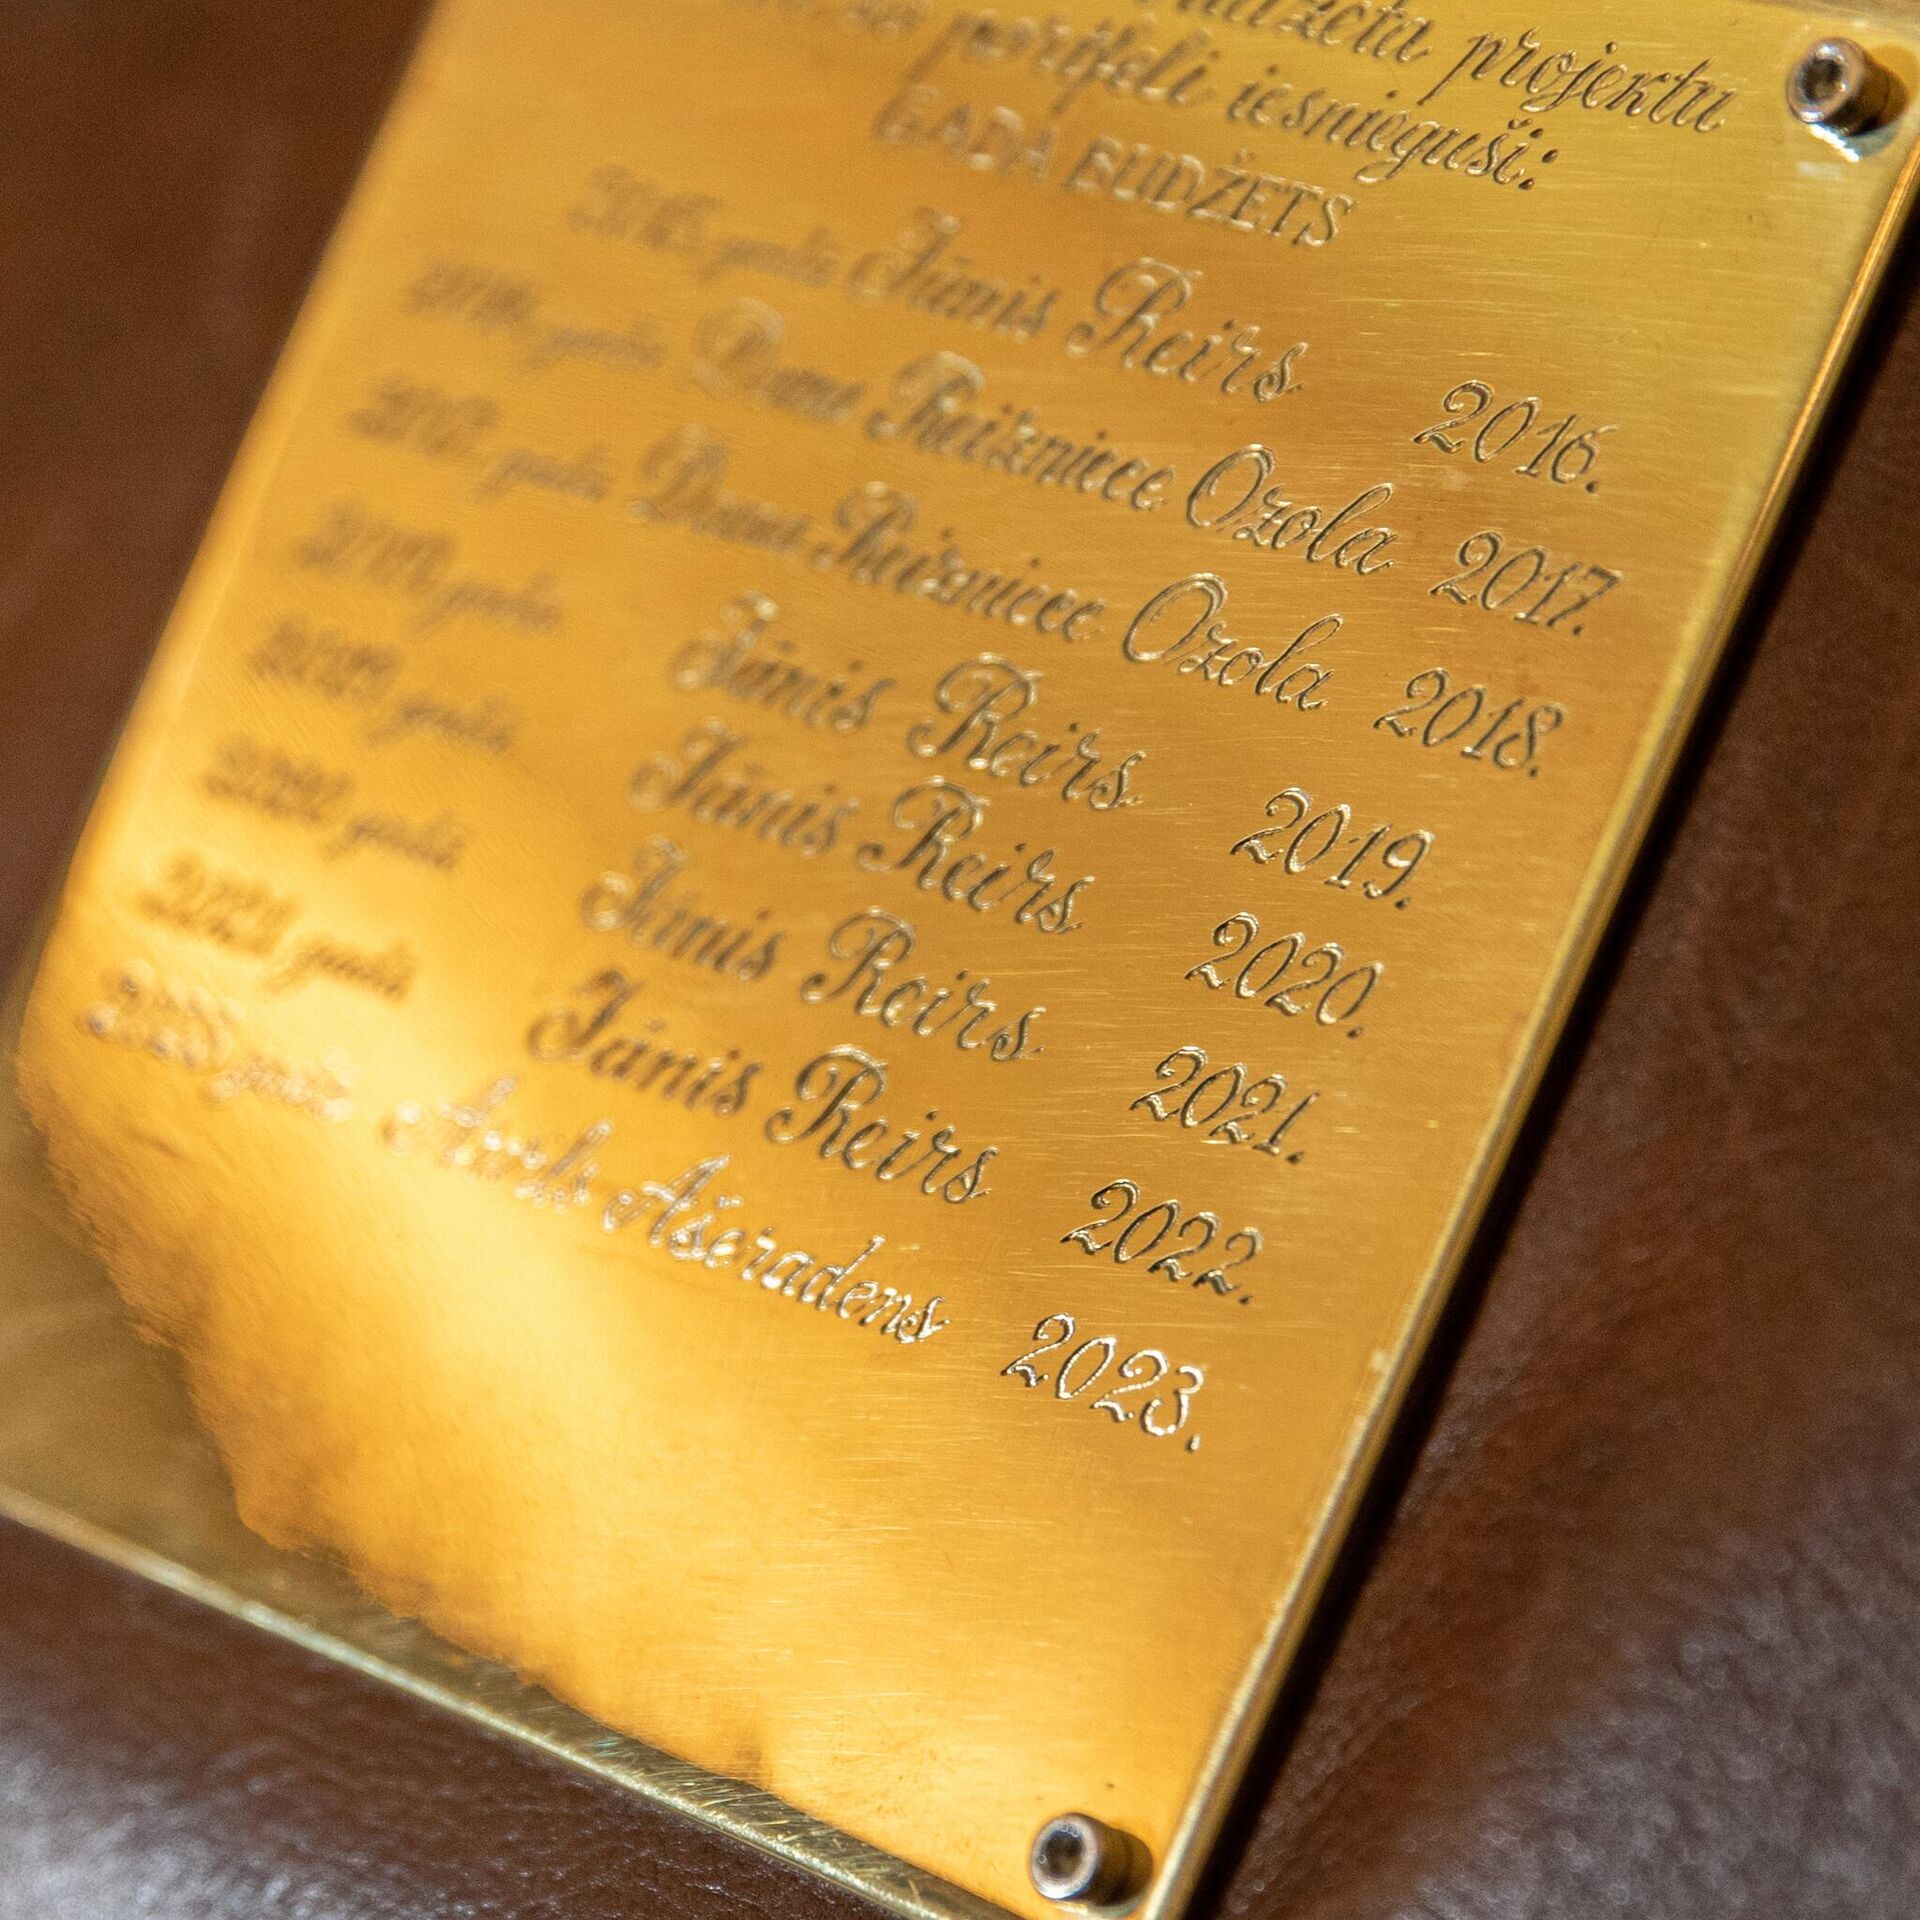 budžeta projektu
portfeli iesnieguši:
GADA BUDŽETS
2015. gadā Jānis Reirs 2016.
2016. gadā Dana Reizniece Ozola 2017.
2017. gadā Dana Reizniece Ozola 2018.
gadā Jānis Reirs 2019.
2019. gadā Jānis Reirs 2020.
2020. gadā Jānis Reirs 2021.
2021. gadā Jānis Reirs 2022.
2023. gadā Arvils Ašeradens 2023.